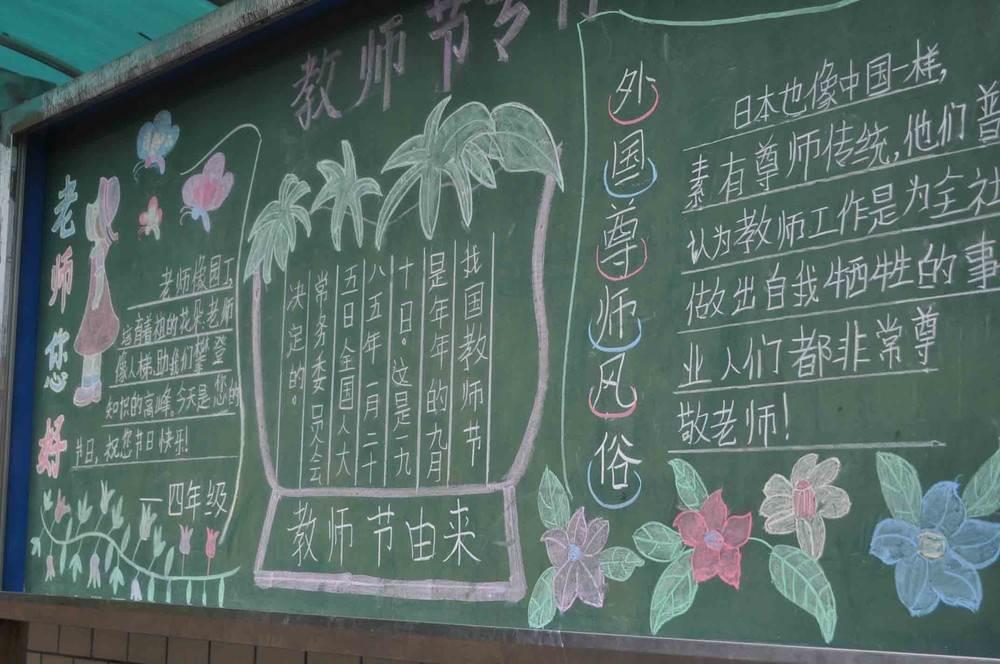 教师节专刊
老师您好
老师像园丁
培育着祖的花朵.老师
像人梯.助我们攀登
知识的高峰.今天是您的
节日,祝您节日快乐!
一四年级
我国教师节
是年年的九月
十日。这是一九
八五年一月二十
五日全国人大
常务委员会
决定的。
教师节由来
外国尊师风俗
日本也像中国一样,
素有尊师传统,他们普
认为教师工作是为全社
做出自我牺牲的事
业人们都非常尊
敬老师!